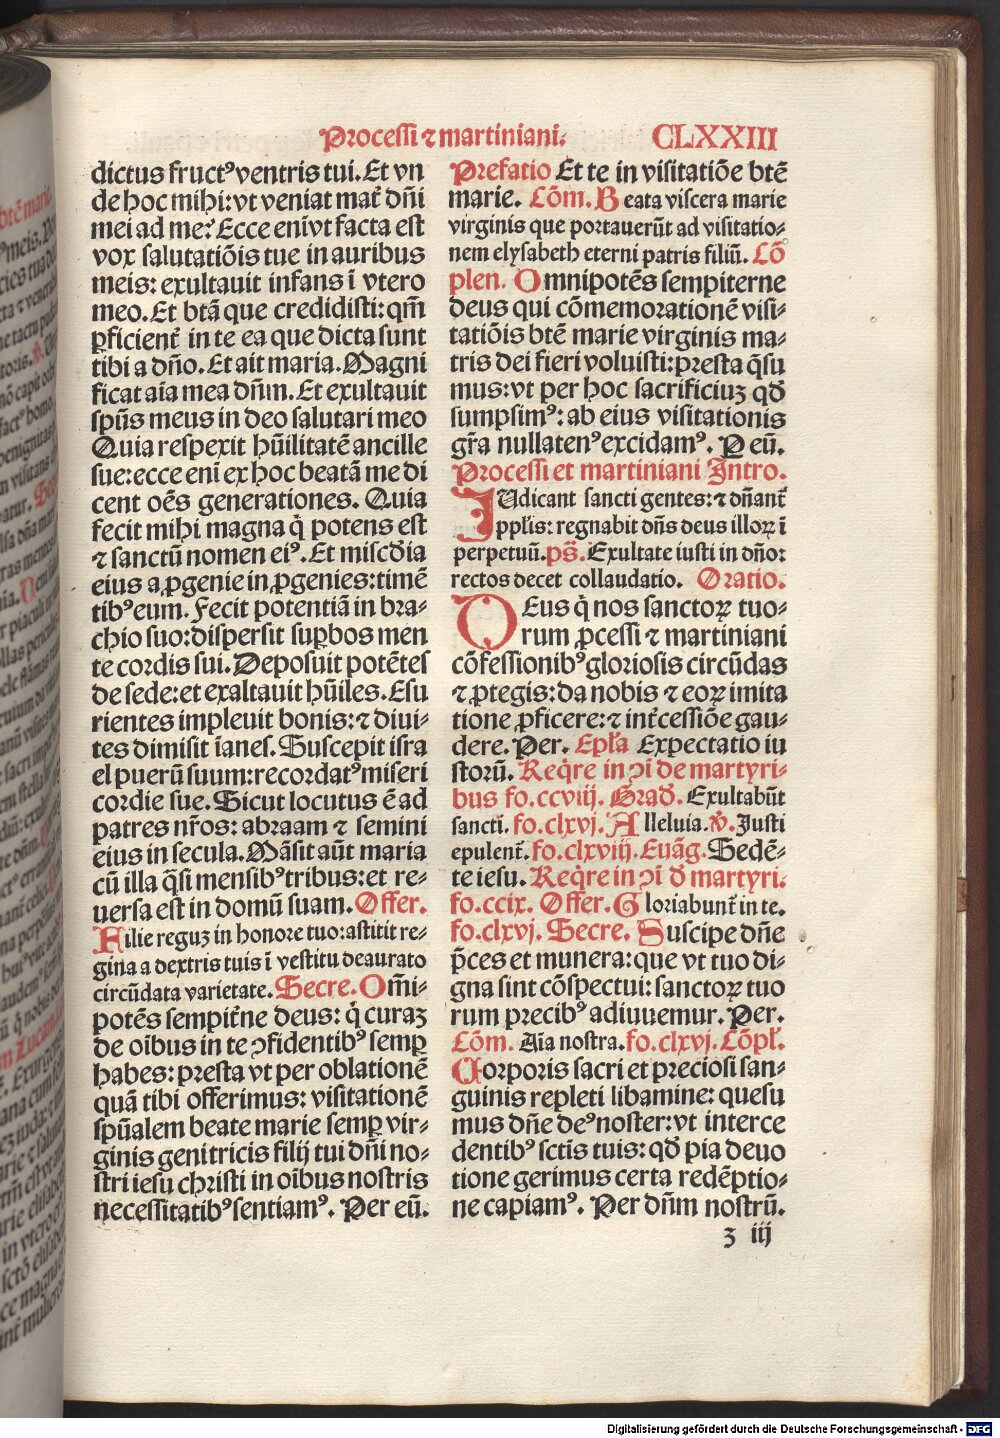 Processi ⁊ martiniani. CLXXIII
dictus fructꝰ ventris tui. Et vn
de hoc mihi: vt veniat mat᷑ dñi
mei ad me? Ecce eni vt facta est
vox salutatiõis tue in auribus
meis: exultauit infans ĩ vtero
meo. Et btã que credidisti: qm̃
ꝑficient᷑ in te ea que dicta sunt
tibi a dño. Et ait maria. Magni
ficat aĩa mea dñm. Et exultauit
spũs meus in deo salutari meo
Quia respexit hũilitatẽ ancille
sue: ecce enĩ ex hoc beatã me di
cent oẽs generationes. Quia
fecit mihi magna q̇ potens est
⁊ sanctũ nomen eiꝰ. Et misc̃dia
eius a ꝓgenie in ꝓgenies: timẽ
tibꝰ eum. Fecit potentiã in bra⸗
chio suo: dispersit suꝑbos men
te cordis sui. Deposuit potẽtes
de sede: et exaltauit hũiles. Esu
rientes impleuit bonis: ⁊ diui⸗
tes dimisit ĩanes. Suscepit isra
el puerũ suum: recordatꝰ miseri
cordie sue. Sicut locutus ẽ ad
patres nr̃os: abraam ⁊ semini
eius in secula. Mãsit aũt maria
cũ illa q̃si mensibꝰ tribus: et re⸗
uersa est in domũ suam. Offer.
Filie reguꝫ in honore tuo: astitit re⸗
gina a dextris tuis ĩ vestitu deaurato
circũdata varietate. Secre. Om̃i⸗
potẽs sempit᷑ne deus: q̇ curaꝫ
de oĩbus in te ꝯfidentibꝰ semꝑ
habes: presta vt per oblationẽ
quã tibi offerimus: visitationẽ
spũalem beate marie semꝑ vir⸗
ginis genitricis filij tui dñi no⸗
stri iesu christi in oĩbus nostris
necessitatibꝰ sentiamꝰ. Per eũ.
Prefatio Et te in visitatiõe btẽ
marie. Cõm. Beata viscera marie
virginis que portauerũt ad visitatio⸗
nem elysabeth eterni patris filiũ. Cõ
plen. Omnipotẽs sempiterne
deus qui cõmemorationẽ visi⸗
tatiõis btẽ marie virginis ma⸗
tris dei fieri voluisti: presta q̃su
mus: vt per hoc sacrificiuꝫ qð
sumpsimꝰ: ab eius visitationis
gr̃a nullatenꝰ excidamꝰ. P eũ.
Processi et martiniani Intro.
IUdicant sancti gentes: ⁊ dñant᷑
ppl̃is: regnabit dñs deus illoꝝ ĩ
perpetuũ. ps̃. Exultate iusti in dño:
rectos decet collaudatio. Oratio.
DEus q̇ nos sanctoꝝ tuo⸗
rum ꝓcessi ⁊ martiniani
cõfessionibꝰ gloriosis circũdas
⁊ ꝓtegis: da nobis ⁊ eoꝝ imita
tione ꝓficere: ⁊ int᷑cessiõe gau⸗
dere. Per. Epl̃a Expectatio iu
storũ. Req̇re in ꝯĩ de martyri⸗
bus fo. ccviij. Grad̃. Exultabũt
sancti. fo. clxvj. Alleluia. ℣. Justi
epulent᷑. fo. clxviij. Euãg. Sedẽ⸗
te iesu. Req̇re in ꝯĩ ð martyri.
fo. ccix. Offer. Gloriabunt᷑ in te.
fo. clxvj. Secre. Suscipe dñe
p̃ces et munera: que vt tuo di⸗
gna sint cõspectui: sanctoꝝ tuo
rum precibꝰ adiuuemur. Per.
Cõm. Aĩa nostra. fo. clxvj. Cõpl᷑.
Corporis sacri et preciosi san⸗
guinis repleti libamine: quesu
mus dñe deꝰ noster: vt interce
dentibꝰ sctĩs tuis: qð pia deuo
tione gerimus certa redẽptio⸗
ne capiamꝰ. Per dñm nostrũ.
ʒ iij
Digitalisierung gefördert durch die Deutsche Forschungsgemeinschaft - DFG